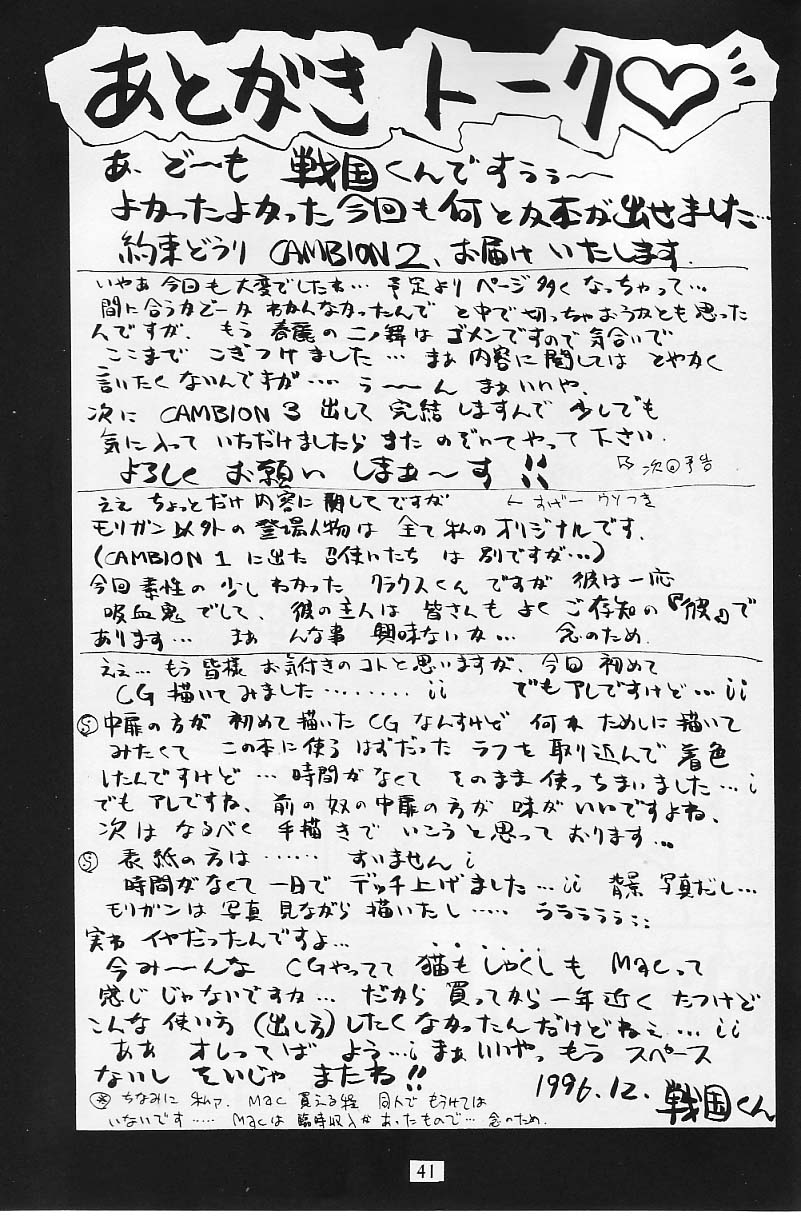 あとがき トーク♡
あ、ど〜も 戦国くんですぅぅ〜
よかったよかった今回も何とか本が出せました…
約束どうり CAMBION2、お届けいたします.
いやぁ今回も大変でしたね… 予定より ページ多くなっちゃって…
間に合うかどーか わかんなかったんで と中で切っちゃおうかとも思った
んですが、もう 春麗の二ノ舞は ゴメンですので気合いで
ここまで こぎつけました… まぁ内容に関しては とやかく
言いたくないんですが…. う〜〜ん まぁいいや、
次に CAMBION 3 出して 完結しますんで 少しでも
気に入って いただけましたら また のぞいてやって下さい.
よろしく お願い しまぁ〜す!! 次回予告
ええ ちょっとだけ 内容に関してですが
モリガン以外の登場人物は 全て私のオリジナルです.
(CAMBION 1 に出た 召使いたち は別ですが…)
今回素性の少しわかった クラウスくんですが 彼は一応
吸血鬼でして、彼の主人は 皆さんも よくご存知の『彼』で
あります… まぁ んな事 興味ないか… 念のため.
ええ…もう皆様 お気付きのコトと思いますが、今回 初めて
CG 描いてみました……… ¡¡ でもアレですけど… ¡¡
Ⓢ中扉の方が 初めて描いた CG なんすけど 何か ためしに描いて
みたくて この本に使うはずだった ラフを取り込んで 着色
したんですけど… 時間がなくて そのまま使っちまいました…¡
でもアレですね、前の奴の中扉の方が 味がいいですよね、
次は なるべく 手描きで いこうと思っております…
Ⓢ 表紙の方は…… すいません¡
時間がなくて 一日で デッチ上げました…¡¡ 背景 写真だし…
モリガンは 写真 見ながら 描いたし….. うううううう;;
実わ イヤだったんですよ… ・・・・・・
今み〜〜んな CGやってて 猫もしゃくしも Macって
感じじゃないですか… だから 買ってから 一年近く たつけど
こんな使い方(出し方)したくなかったんだけどねぇ… ¡¡
ああ オレってば よう…¡ まぁいいやっ もう スペース
ないし そいじゃ またね!!
1996.12. 戦国くん
※ちなみに 私ァ、Mac 買える程 同人で もうけては
いないです….. Macは 臨時収入があったもので… 念のため.
41